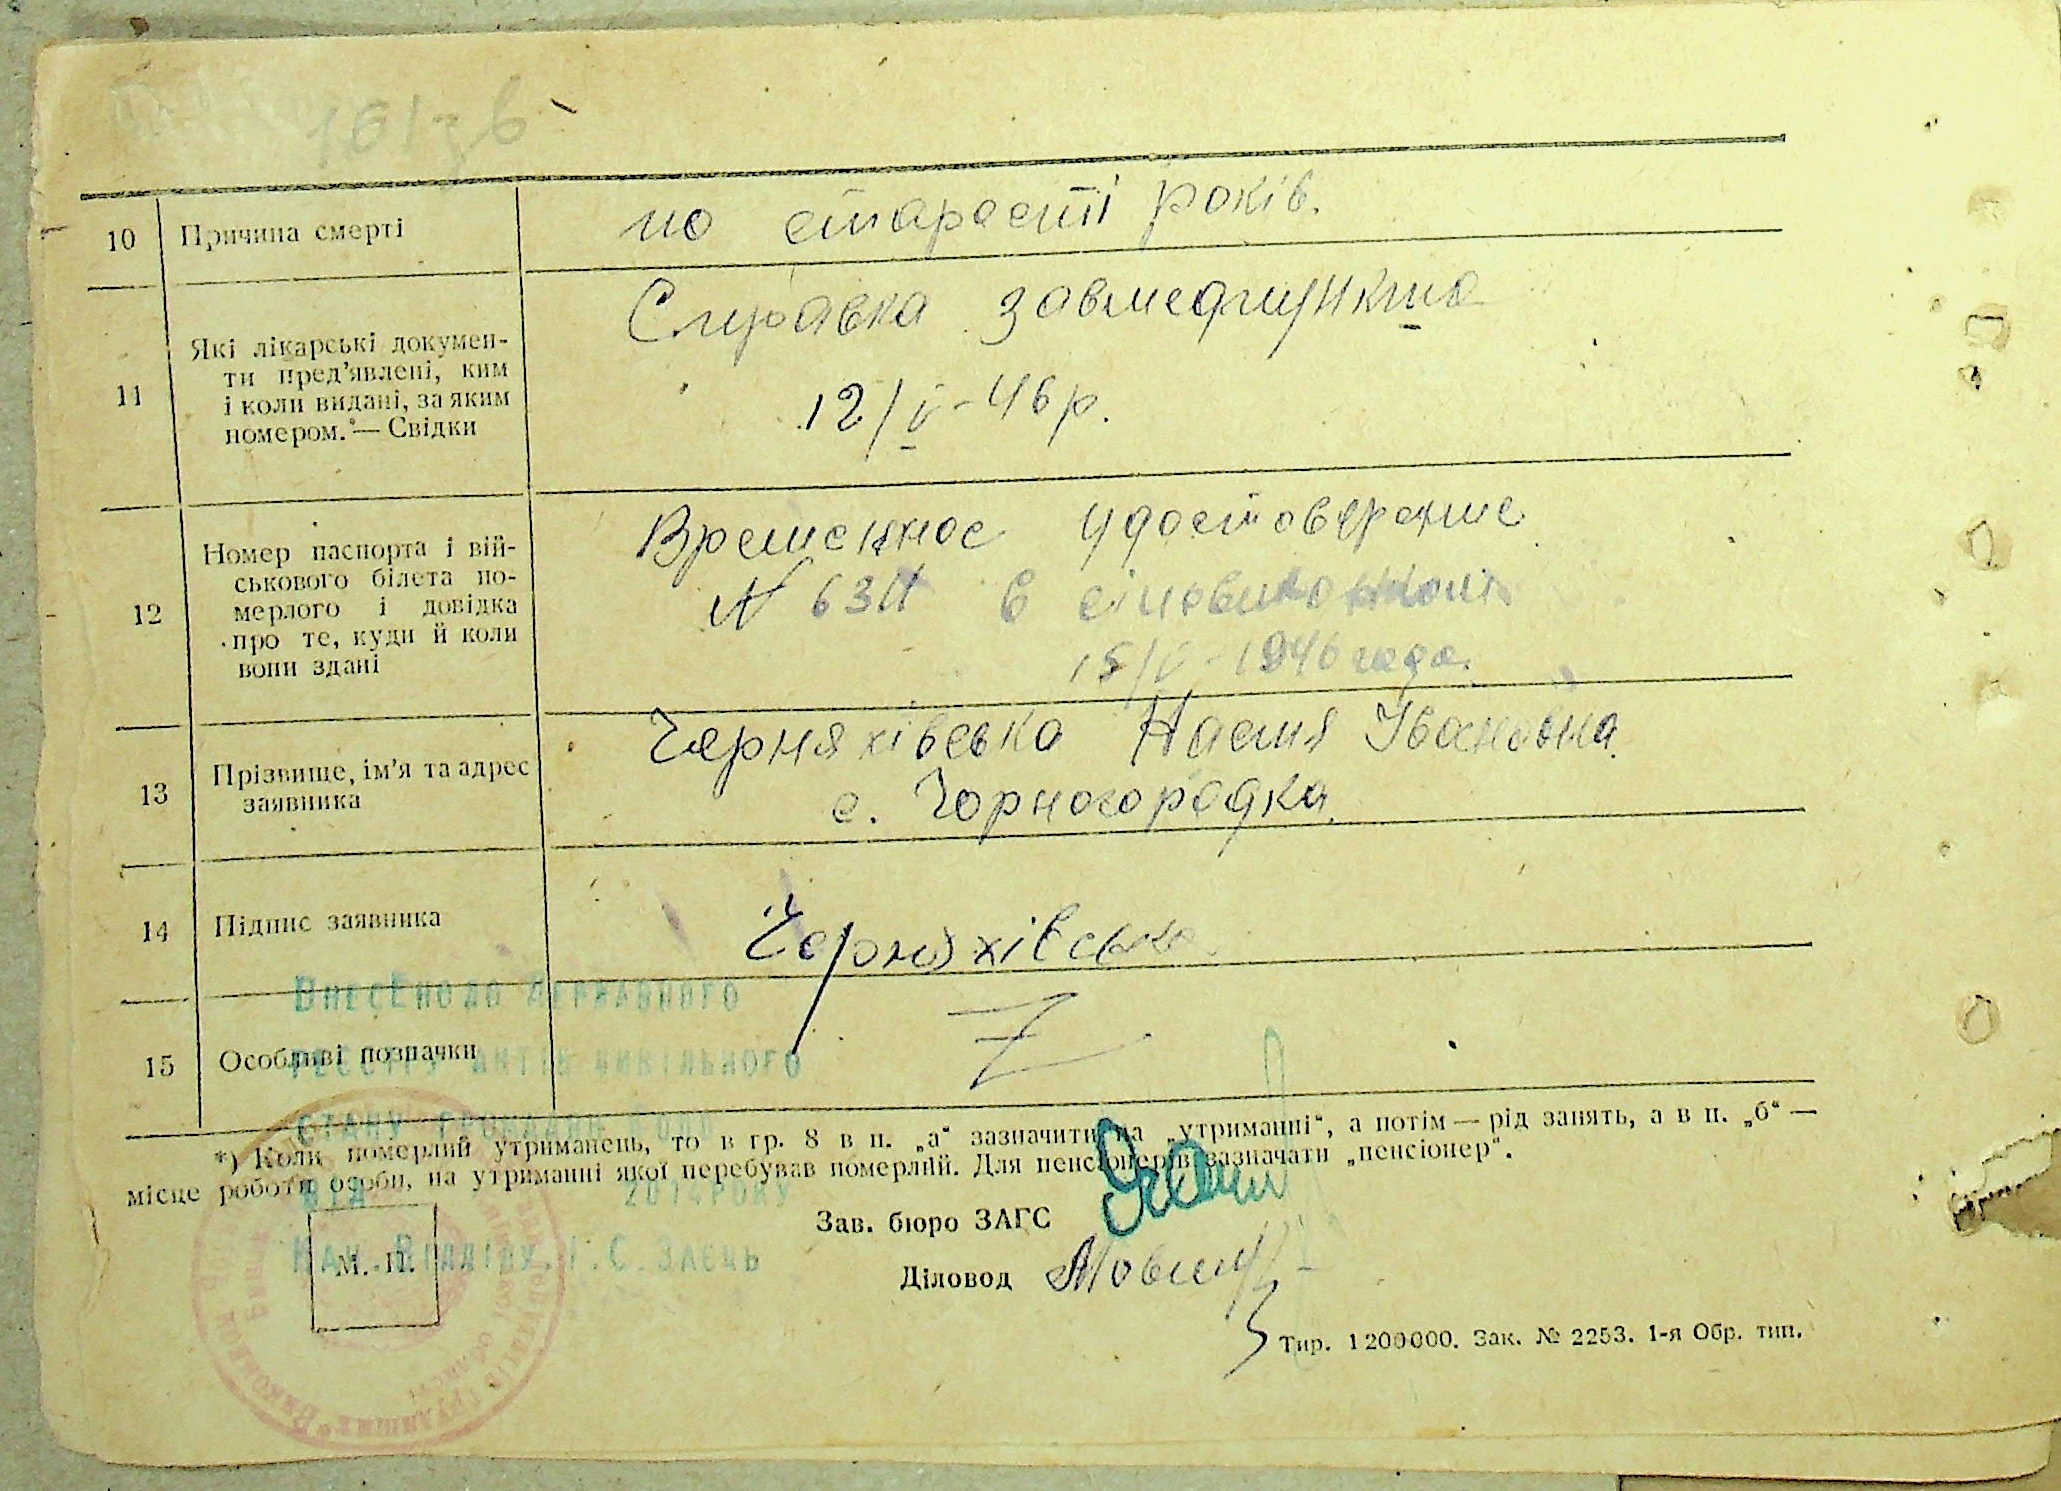 10 Причина смерті
по старості років.
11 Які лікарські докумен-
ти пред’явлені, ким
і коли видані, за яким
номером.— Свідки
Справка завмедпункта
12/V-46 р.
12 Номер паспорта і вій-
ськового білета по-
мерлого і довідка
про те, куди й коли
вони здані
Временное удостоверение
N 63
15/V-1946 года.
13 Прізвище, ім’я та адрес
заявника
Черняхівська Настя Івановна
с. Чорногородка.
14 Підпис заявника
Черняхівська
15 Особливі позначки
Z
Внесено до Державного
реєстру актів цивільного
стану громадян
*) Коли померлий утриманець, то в гр. 8 в п. „а“ зазначити на „утриманні“, а потім — рід занять, а в п. „б“ —
місце роботи особи, на утриманні якої перебував померлий. Для пенсіонерів зазначати „пенсіонер“.
2014 року
Зав. бюро ЗАГС
Нач. відділу. Г.С. Заєць
М. П.
Діловод
Тир. 1200000. Зак. № 2253. 1-я Обр. тип.